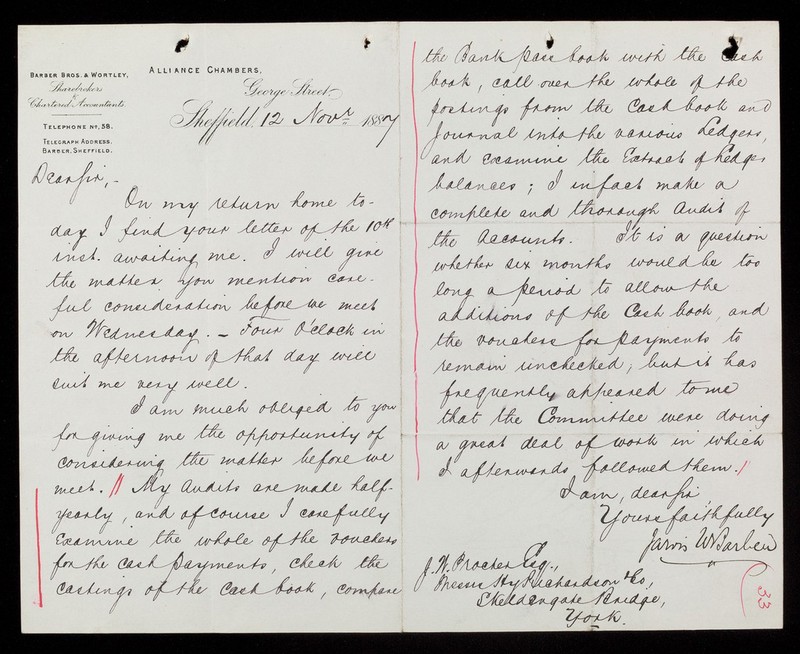 BARBER BROS. & WORTLEY,
Sharebrokers
&
Chartered Accountants.
TELEPHONE No, 38.
TELEGRAPH ADDRESS.
BARBER, SHEFFIELD.
ALLIANCE CHAMBERS,
George Street
Sheffield, 12 Novr 1887
Dear Sir,-
On my return home to-
day I find your letter of the 10th
inst. awaiting me. I will give
the matter you mention care-
ful consideration before we meet
on Wednesday. - Four O'Clock in
the afternoon of that day will
suit me very well.
I am much obliged to you
for giving me the opportunity of
considering the matter before we
meet. // My Audits are made half-
yearly, and of course I carefully
Examine the whole of the vouchers
for the cash payments, check the
castings of the Cash book, compare
the Bank pass book with the Cash
book, call over the whole of the
postings from the Cash book and
Journal into the various Ledgers,
and examine the Extracts of Ledger
balances; I in fact make a
complete and thorough Audit of
the Accounts. It is a question
whether six months would be too
long a period to allow the
additions of the Cash book, and
the vouchers for payments to
remain unchecked; but it has
frequently appeared to me
that the Committee were doing
a great deal of work in which
I afterwards followed them. //
I am, dear Sir,
Yours faithfully
Jarvis W Barber
J. W. Procter Esq.,
Messrs Hy Richardson & Co,
Skeldergate Bridge,
York.
33